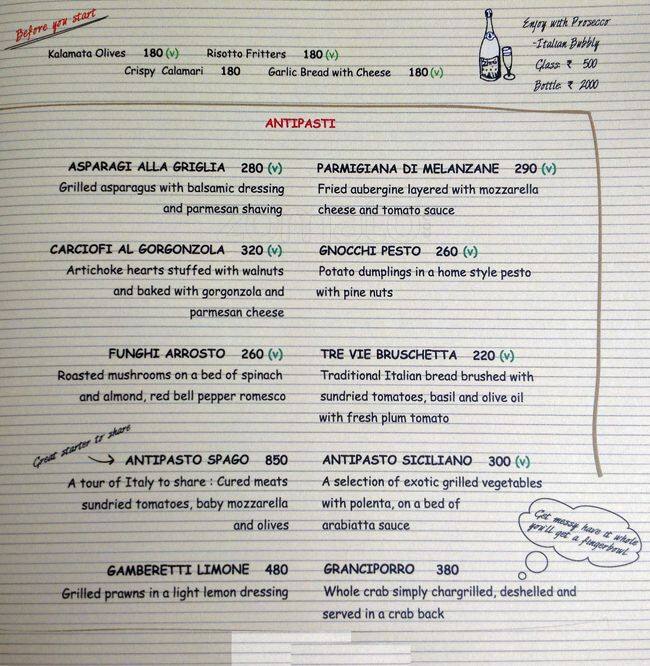 Before you start
Kalamata Olives 180 (v) Risotto Fritters 180 (v)
Crispy Calamari 180 Garlic Bread with Cheese 180 (v)
Enjoy with Prosecco
-Italian Bubbly
Glass: ₹ 500
Bottle: ₹ 2000
ANTIPASTI
ASPARAGI ALLA GRIGLIA 280 (v)
Grilled asparagus with balsamic dressing
and parmesan shaving
PARMIGIANA DI MELANZANE 290 (v)
Fried aubergine layered with mozzarella
cheese and tomato sauce
CARCIOFI AL GORGONZOLA 320 (v)
Artichoke hearts stuffed with walnuts
and baked with gorgonzola and
parmesan cheese
GNOCCHI PESTO 260 (v)
Potato dumplings in a home style pesto
with pine nuts
FUNGHI ARROSTO 260 (v)
Roasted mushrooms on a bed of spinach
and almond, red bell pepper romesco
TRE VIE BRUSCHETTA 220 (v)
Traditional Italian bread brushed with
sundried tomatoes, basil and olive oil
with fresh plum tomato
Great starter to share
ANTIPASTO SPAGO 850
A tour of Italy to share : Cured meats
sundried tomatoes, baby mozzarella
and olives
ANTIPASTO SICILIANO 300 (v)
A selection of exotic grilled vegetables
with polenta, on a bed of
arabiatta sauce
Get messy have it whole
you'll get a fingerbowl
GAMBERETTI LIMONE 480
Grilled prawns in a light lemon dressing
GRANCIPORRO 380
Whole crab simply chargrilled, deshelled and
served in a crab back